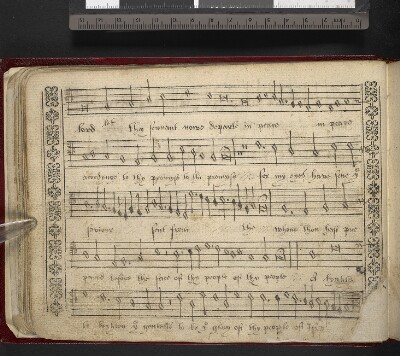 lord let thy servant nowe departe in peace in peace
accordinge to thy promys to thy promys for my eyes have sene yᵉ
savioure sent from the whom thou hast pre
pared before the face of thy people of thy people A
to lyghten yᵉ gentylls to be yᵉ glory of thy people of